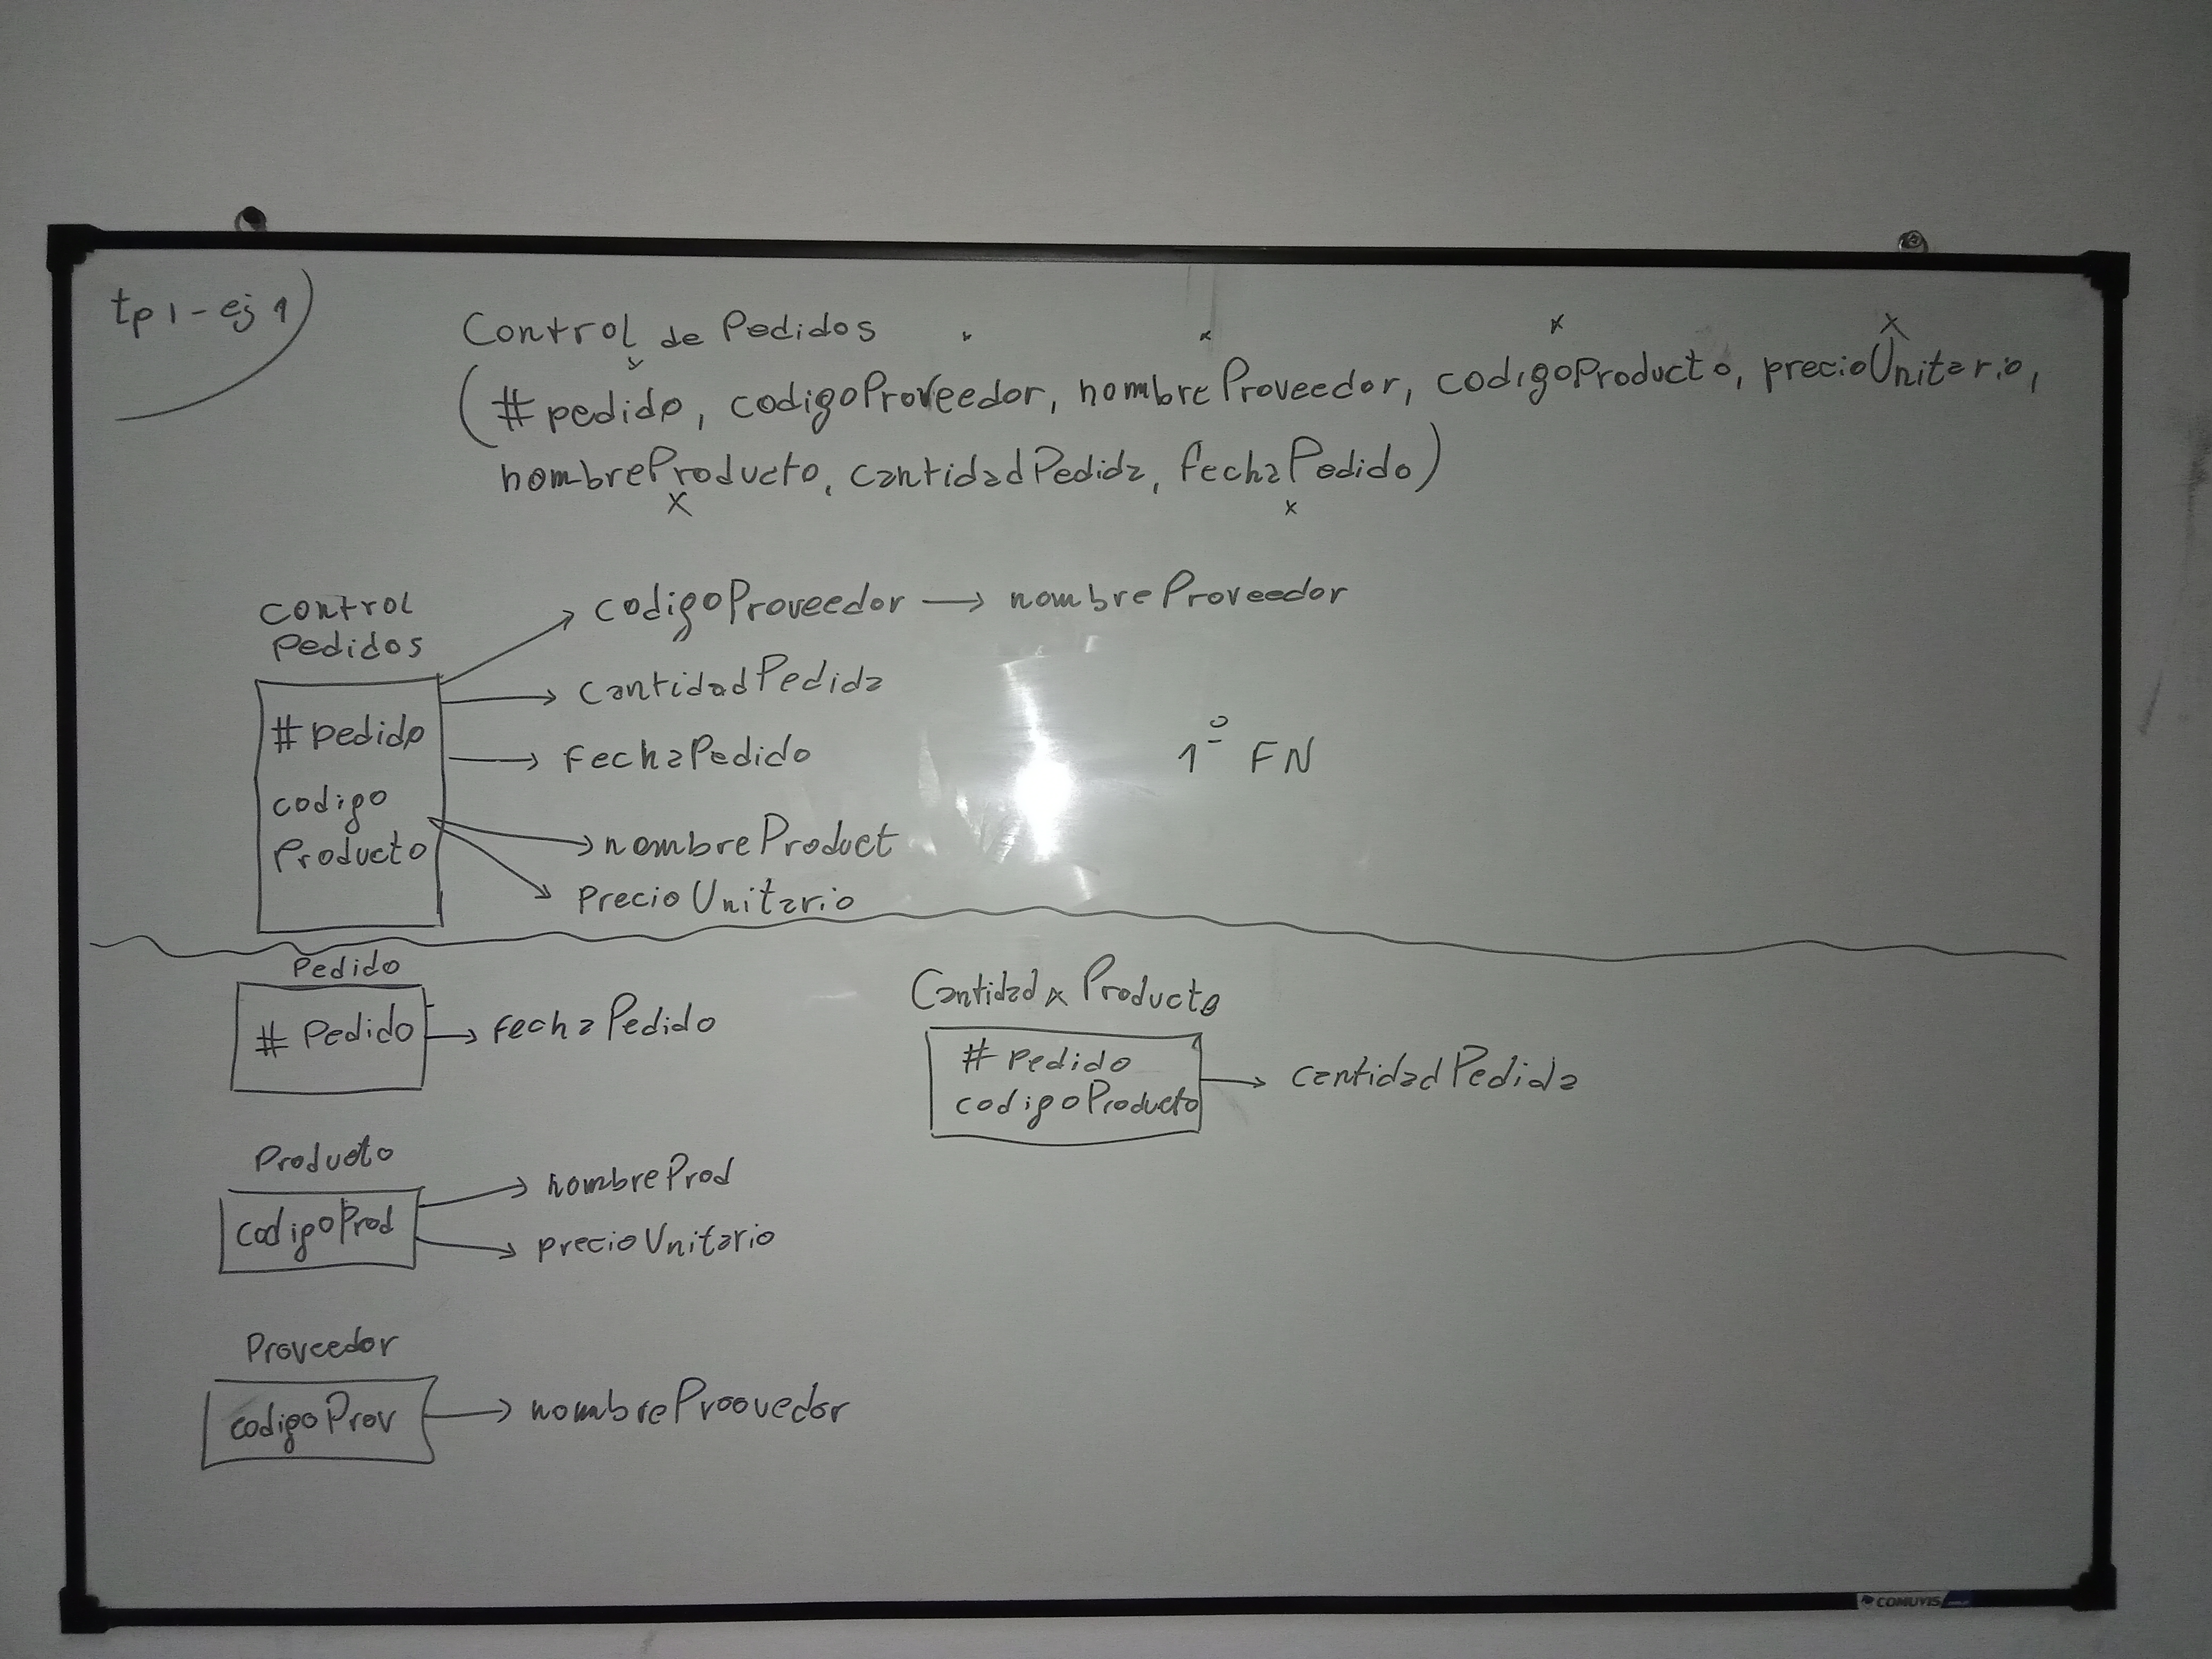 tp 1 - ej 1)
Control de Pedidos
(#pedido, codigoProveedor, nombreProveedor, codigoProducto, precioUnitario,
nombreProducto, cantidadPedida, fechaPedido)
control
Pedidos
#pedido
codigo
Producto
codigoProveedor → nombreProveedor
cantidadPedida
fechaPedido
nombreProduct
precioUnitario
1º FN
Pedido
# Pedido → fechaPedido
Producto
codigoProd
nombreProd
precioUnitario
Proveedor
codigoProv → nombreProovedor
Cantidad x Producto
# Pedido
codigoProducto
→ cantidadPedida
COMUVIS